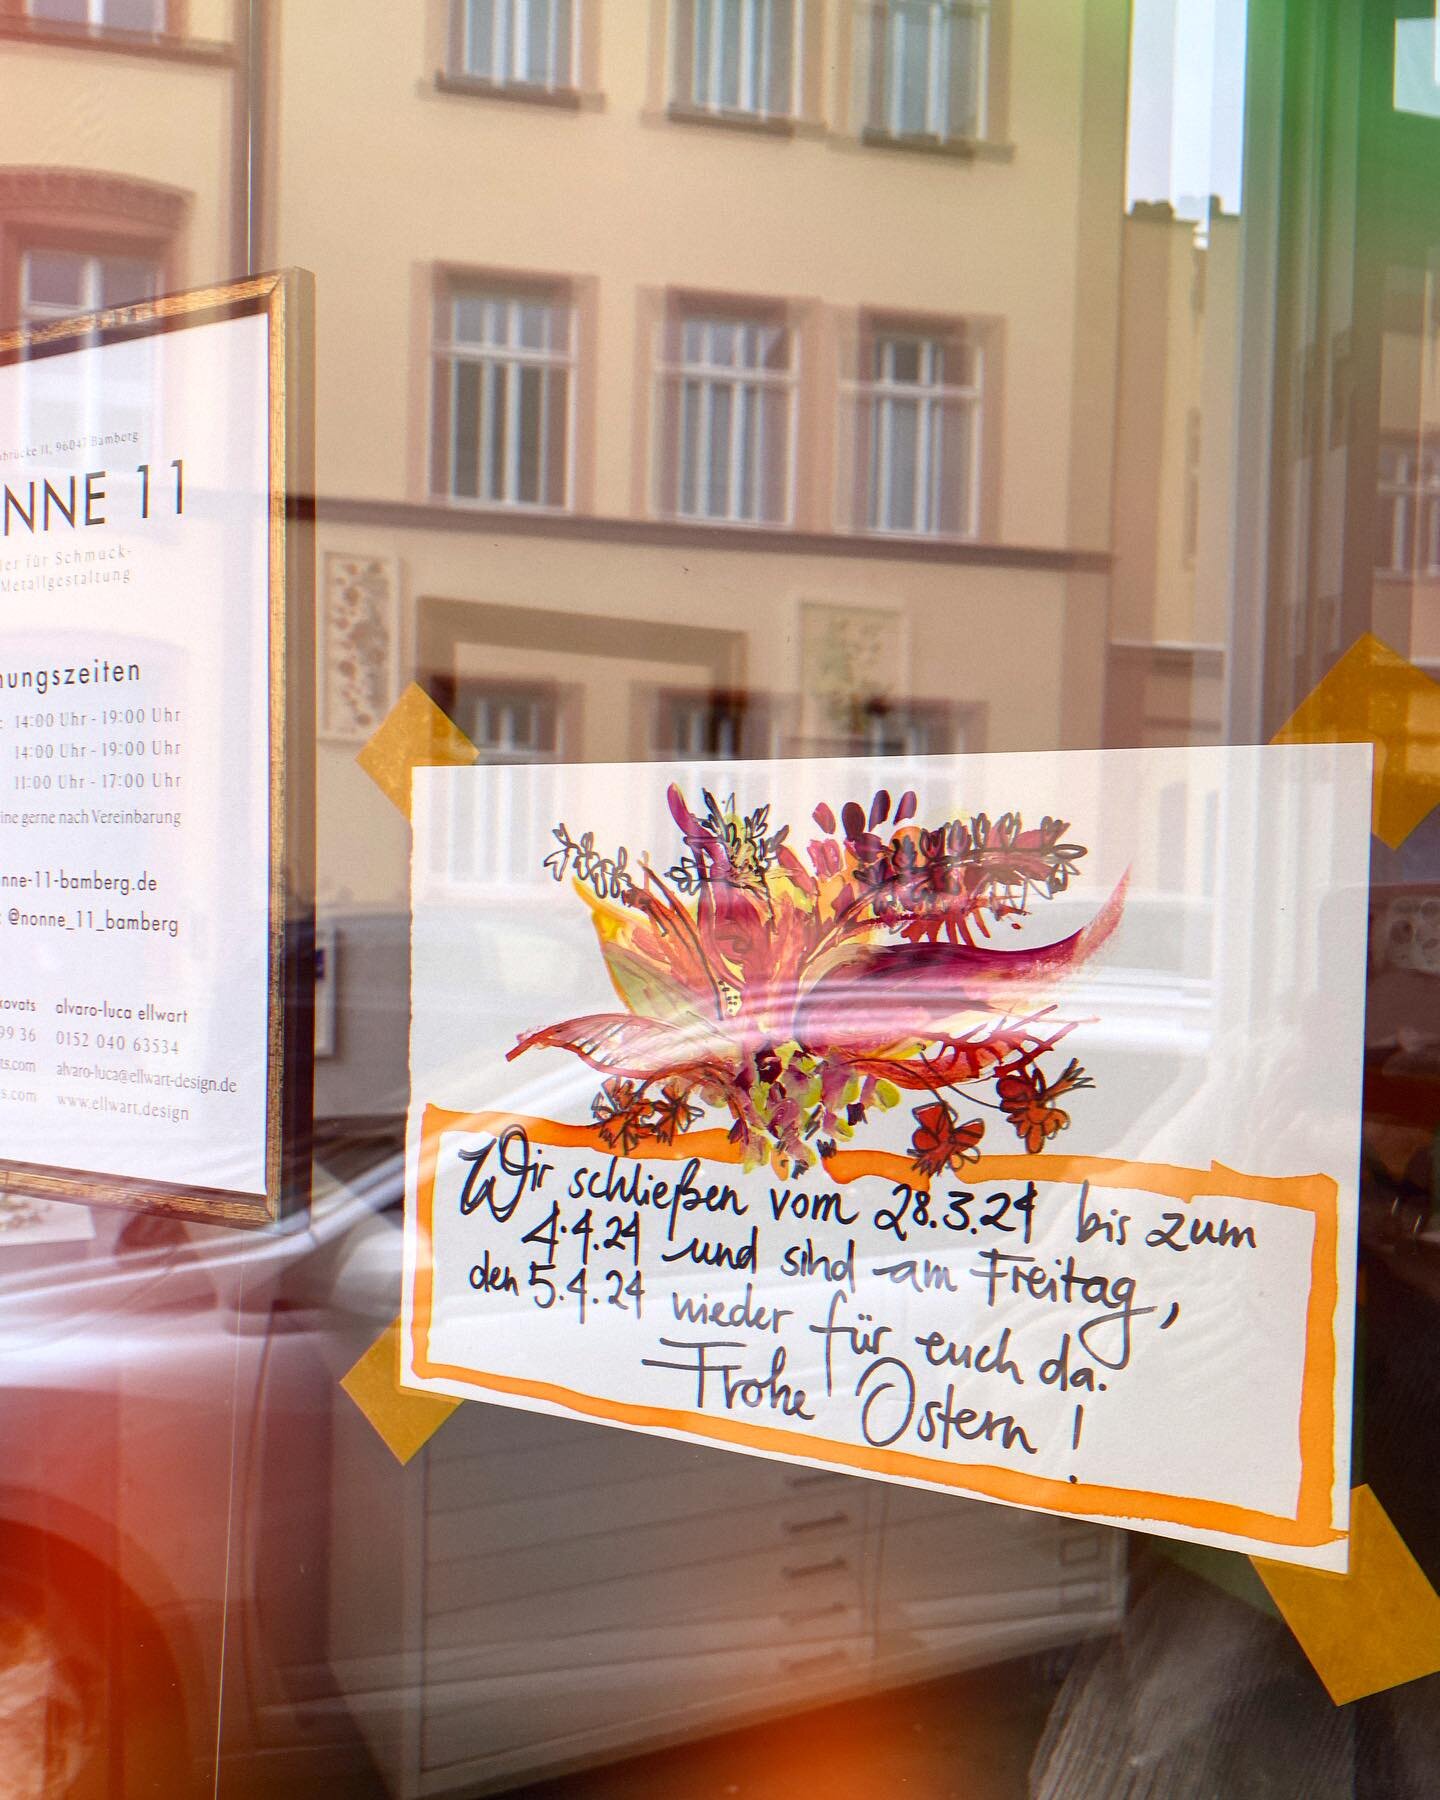 96047 Bamberg
NNE 11
für Schmuck-
Metallgestaltung
14:00 Uhr - 19:00 Uhr
14:00 Uhr - 19:00 Uhr
11:00 Uhr - 17:00 Uhr
gerne nach Vereinbarung
nne-11-bamberg.de
@nonne_11_bamberg
alvaro-luca ellwart
99 36 0152 040 63534
alvaro-luca@ellwart-design.de
www.ellwart.design
Wir schließen vom 28.3.24 bis zum
4.4.24 und sind am Freitag,
den 5.4.24 wieder für euch da.
Frohe Ostern!